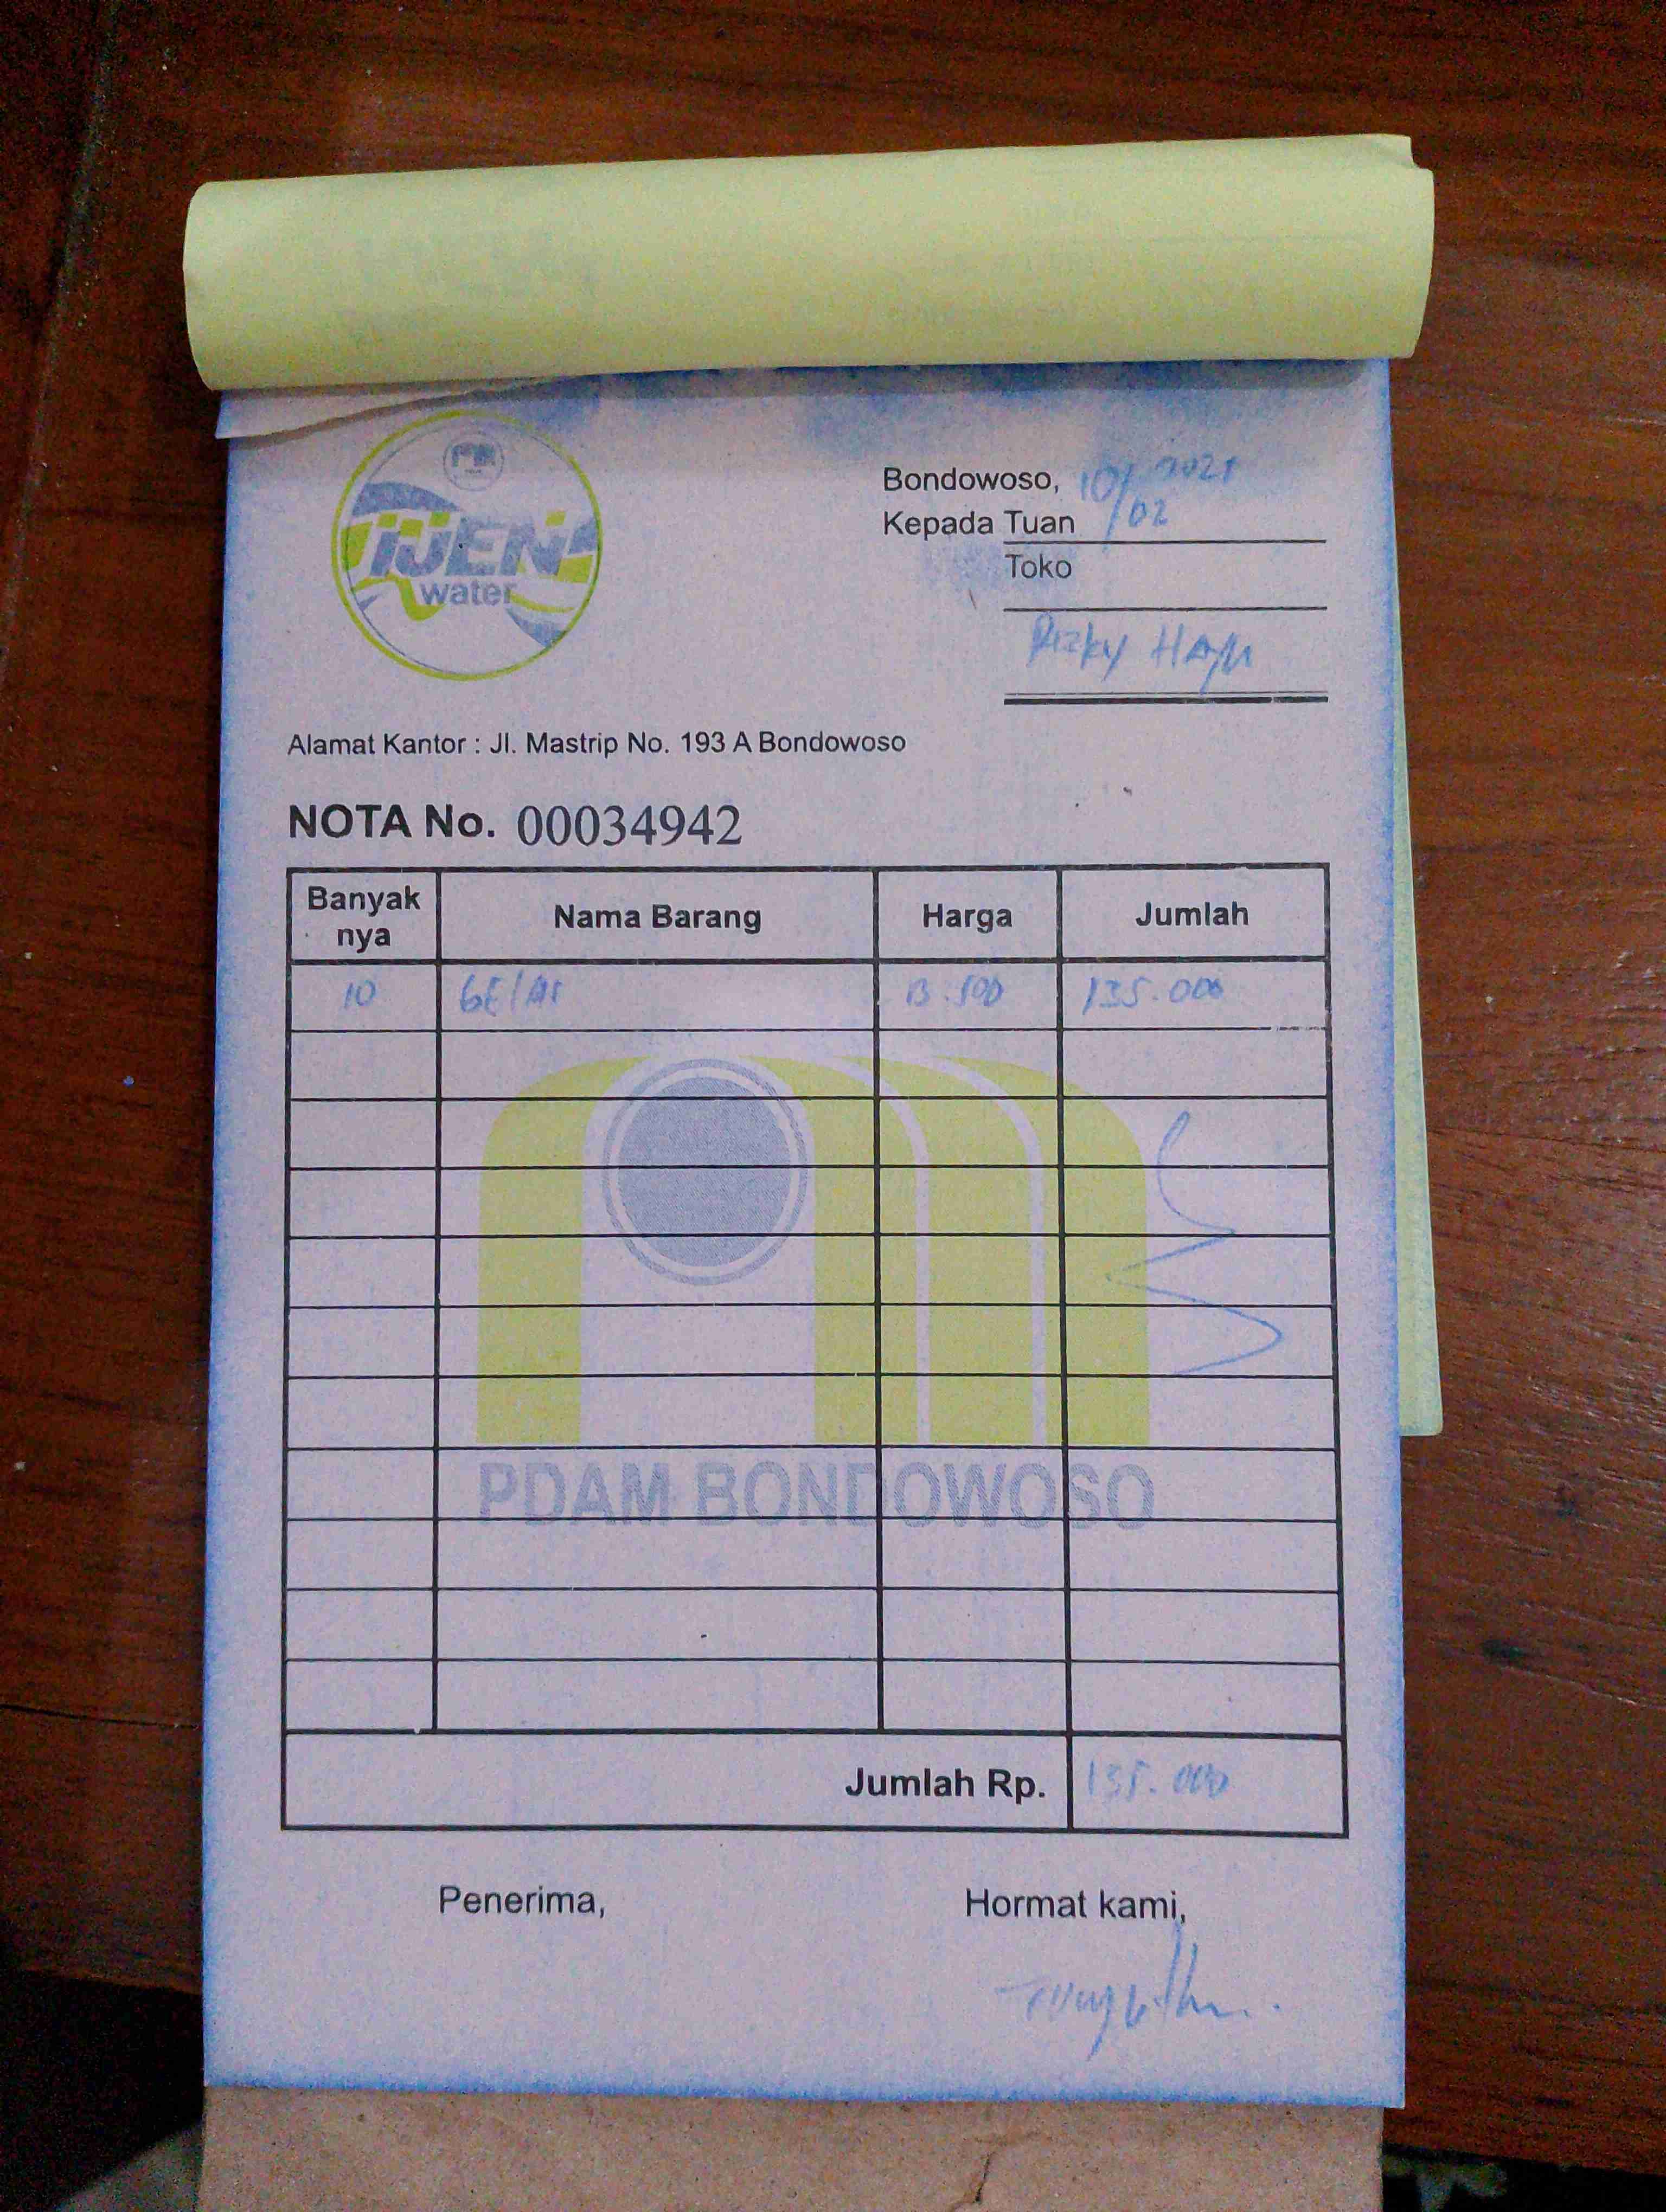 IJEN
water
Bondowoso, 10/02 2021
Kepada Tuan
Toko
Rizky
Alamat Kantor : Jl. Mastrip No. 193 A Bondowoso
NOTA No. 00034942
Banyak nya Nama Barang Harga Jumlah
10 GELAS 13.500 135.000
PDAM BONDOWOSO
Jumlah Rp. 135.000
Penerima, Hormat kami,